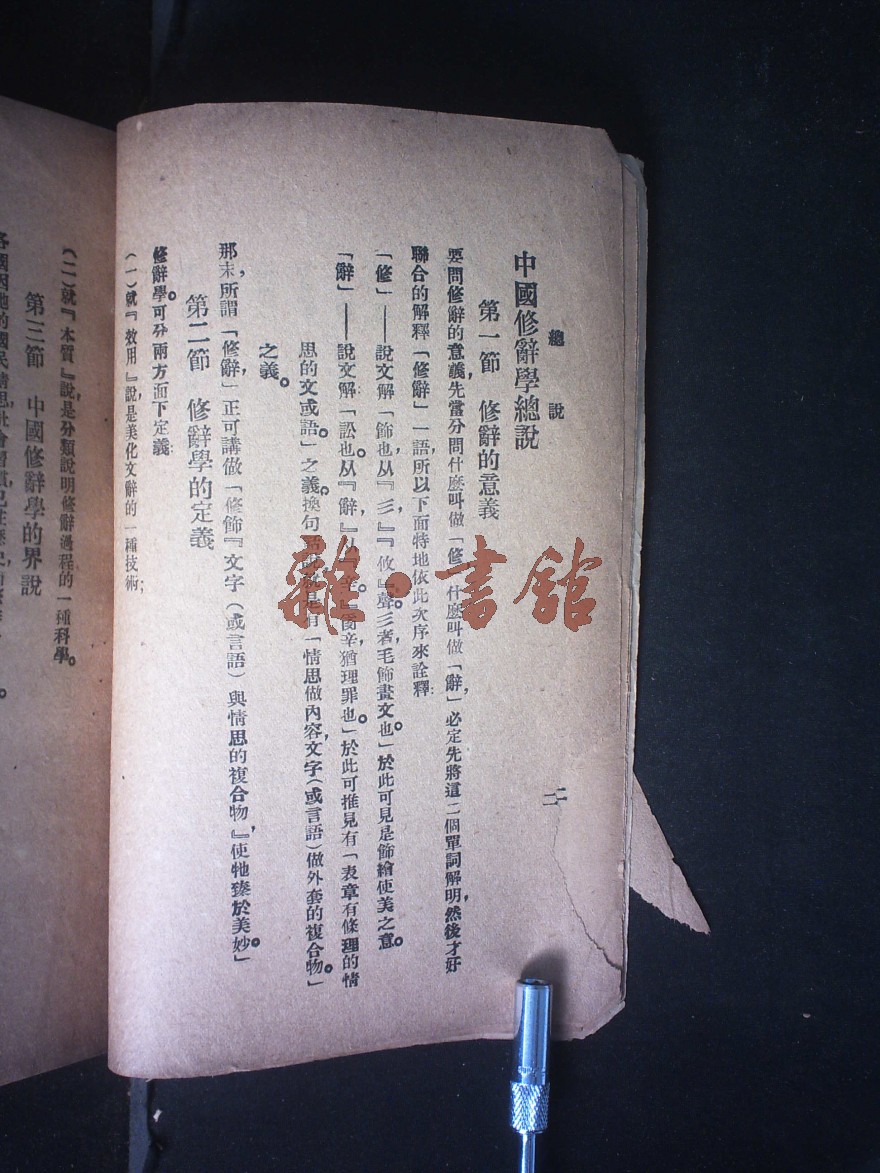 總說
二
中國修辭學總說
第一節 修辭的意義
要問修辭的意義,先當分問什麼叫做「修」,什麼叫做「辭」,必定先將這二個單詞解明,然後才好
聯合的解釋「修辭」一語,所以下面特地依此次序來詮釋:
「修」——說文解「飾也,从『彡』,『攸』聲。彡者毛飾畫文也。」於此可見是飾繪使美之意。
「辭」——說文解「訟也。从『辭』,猶理罪也。」於此可推見有「表章有條理的情
思的文或語。」之義。換句 有「情思做內容,文字(或言語)做外套的複合物。」
之義。
那末,所謂「修辭,」正可講做「修飾『文字(或言語)與情思的複合物,』使牠臻於美妙。」
第二節 修辭學的定義
修辭學可分兩方面下定義:
(一)就『效用』說,是美化文辭的一種技術;
(二)就『本質』說,是分類說明修辭過程的一種科學。
第三節 中國修辭學的界說
各國因牠的國民情思,社會習慣,
雜·書館